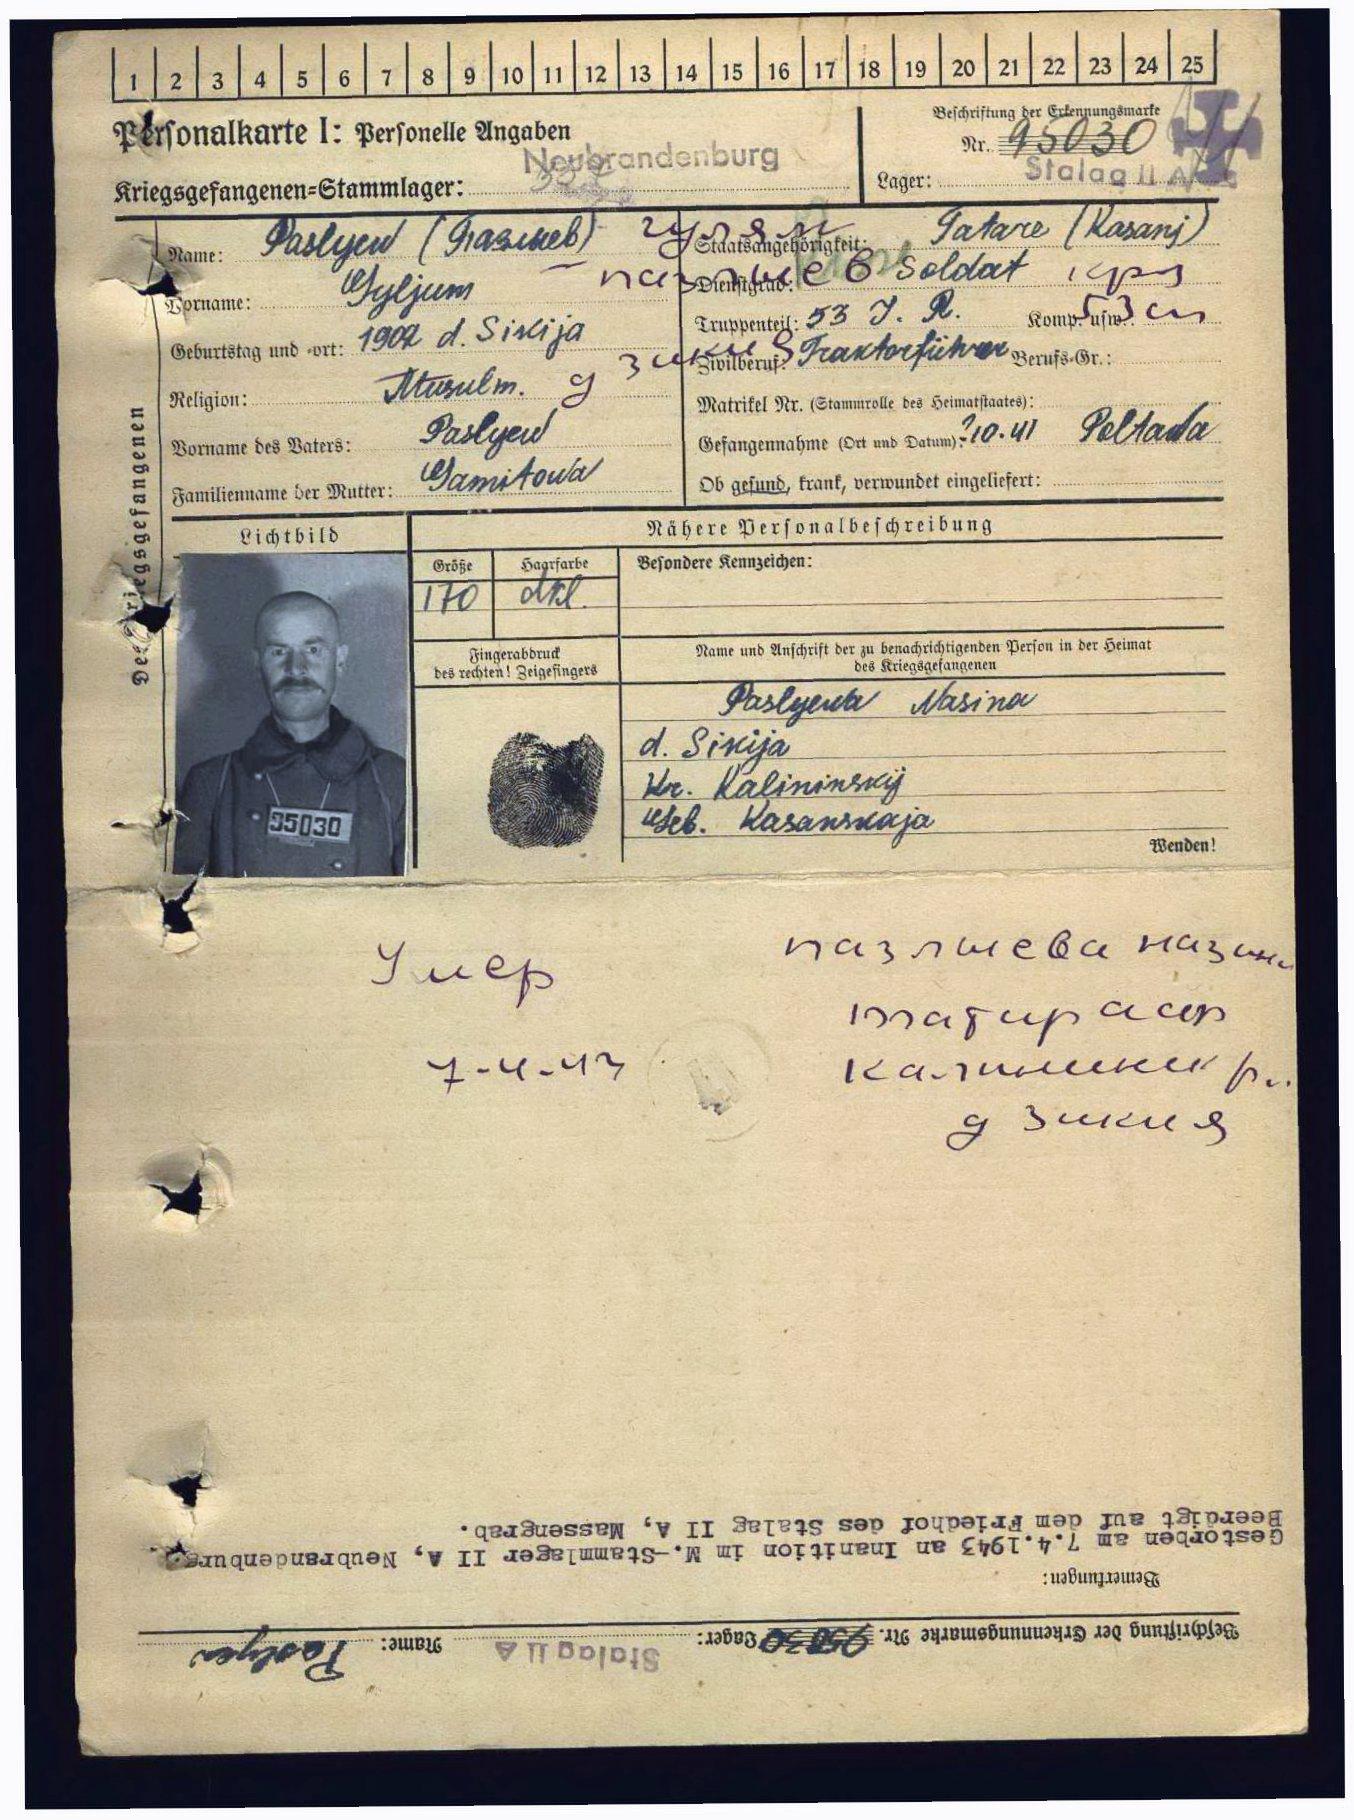 1 2 3 4 5 6 7 8 9 10 11 12 13 14 15 16 17 18 19 20 21 22 23 24 25
Personalkarte I: Personelle Angaben
Beschriftung der Erkennungsmarke
Nr. 95030
Neubrandenburg
Kriegsgefangenen=Stammlager:
Lager: Stalag II A
Des Kriegsgefangenen
Name: Paslyew (Пазлыев) гулям
Staatsangehörigkeit: Tatare (Kasanj)
Vorname: Gyljum
пазлыев
Dienstgrad: Soldat
Truppenteil: 53 J. R. Komp. usw.: 53 сп
Geburtstag und -ort: 1902 d. Sikija
д зикия
Zivilberuf: Traktorführer Berufs-Gr.:
Religion: Musulm.
Matrikel Nr. (Stammrolle des Heimatstaates):
Vorname des Vaters: Paslyew
Gefangennahme (Ort und Datum): ?10.41 Poltawa
Familienname der Mutter: Gamitowa
Ob gesund, krank, verwundet eingeliefert:
Lichtbild
Nähere Personalbeschreibung
Größe
Haarfarbe
Besondere Kennzeichen:
170
dkl.
Fingerabdruck
des rechten! Zeigefingers
Name und Anschrift der zu benachrichtigenden Person in der Heimat
des Kriegsgefangenen
Paslyewa Nasina
d. Sikija
Kr. Kalininskij
Geb. Kasanskaja
95030
Wenden!
Умер
7-4-43
пазлыева назина
д зикия
Beschriftung der Erkennungsmarke Nr. 95030 Lager: Stalag II A Name: Paslyew
Bemerkungen:
Gestorben am 7.4.1943 an Inanition im M.-Stammlager II A, Neubrandenburg.
Beerdigt auf dem Friedhof des Stalag II A, Massengrab.